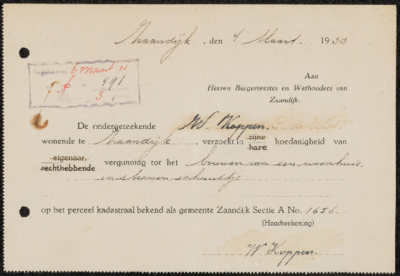 Zaandijk, den 4 Maart 1933
Aan
Heeren Burgemeester en Wethouders van
Zaandijk.
6 Maart
591
De ondergeteekende W Koppen
wonende te Zaandijk, verzoekt in zijne hare hoedanigheid van
eigenaar, rechthebbende vergunning tot het bouwen van een woonhuis
op het perceel kadastraal bekend als gemeente Zaandijk Sectie A No. 1656.
(Handteekening)
W Koppen.